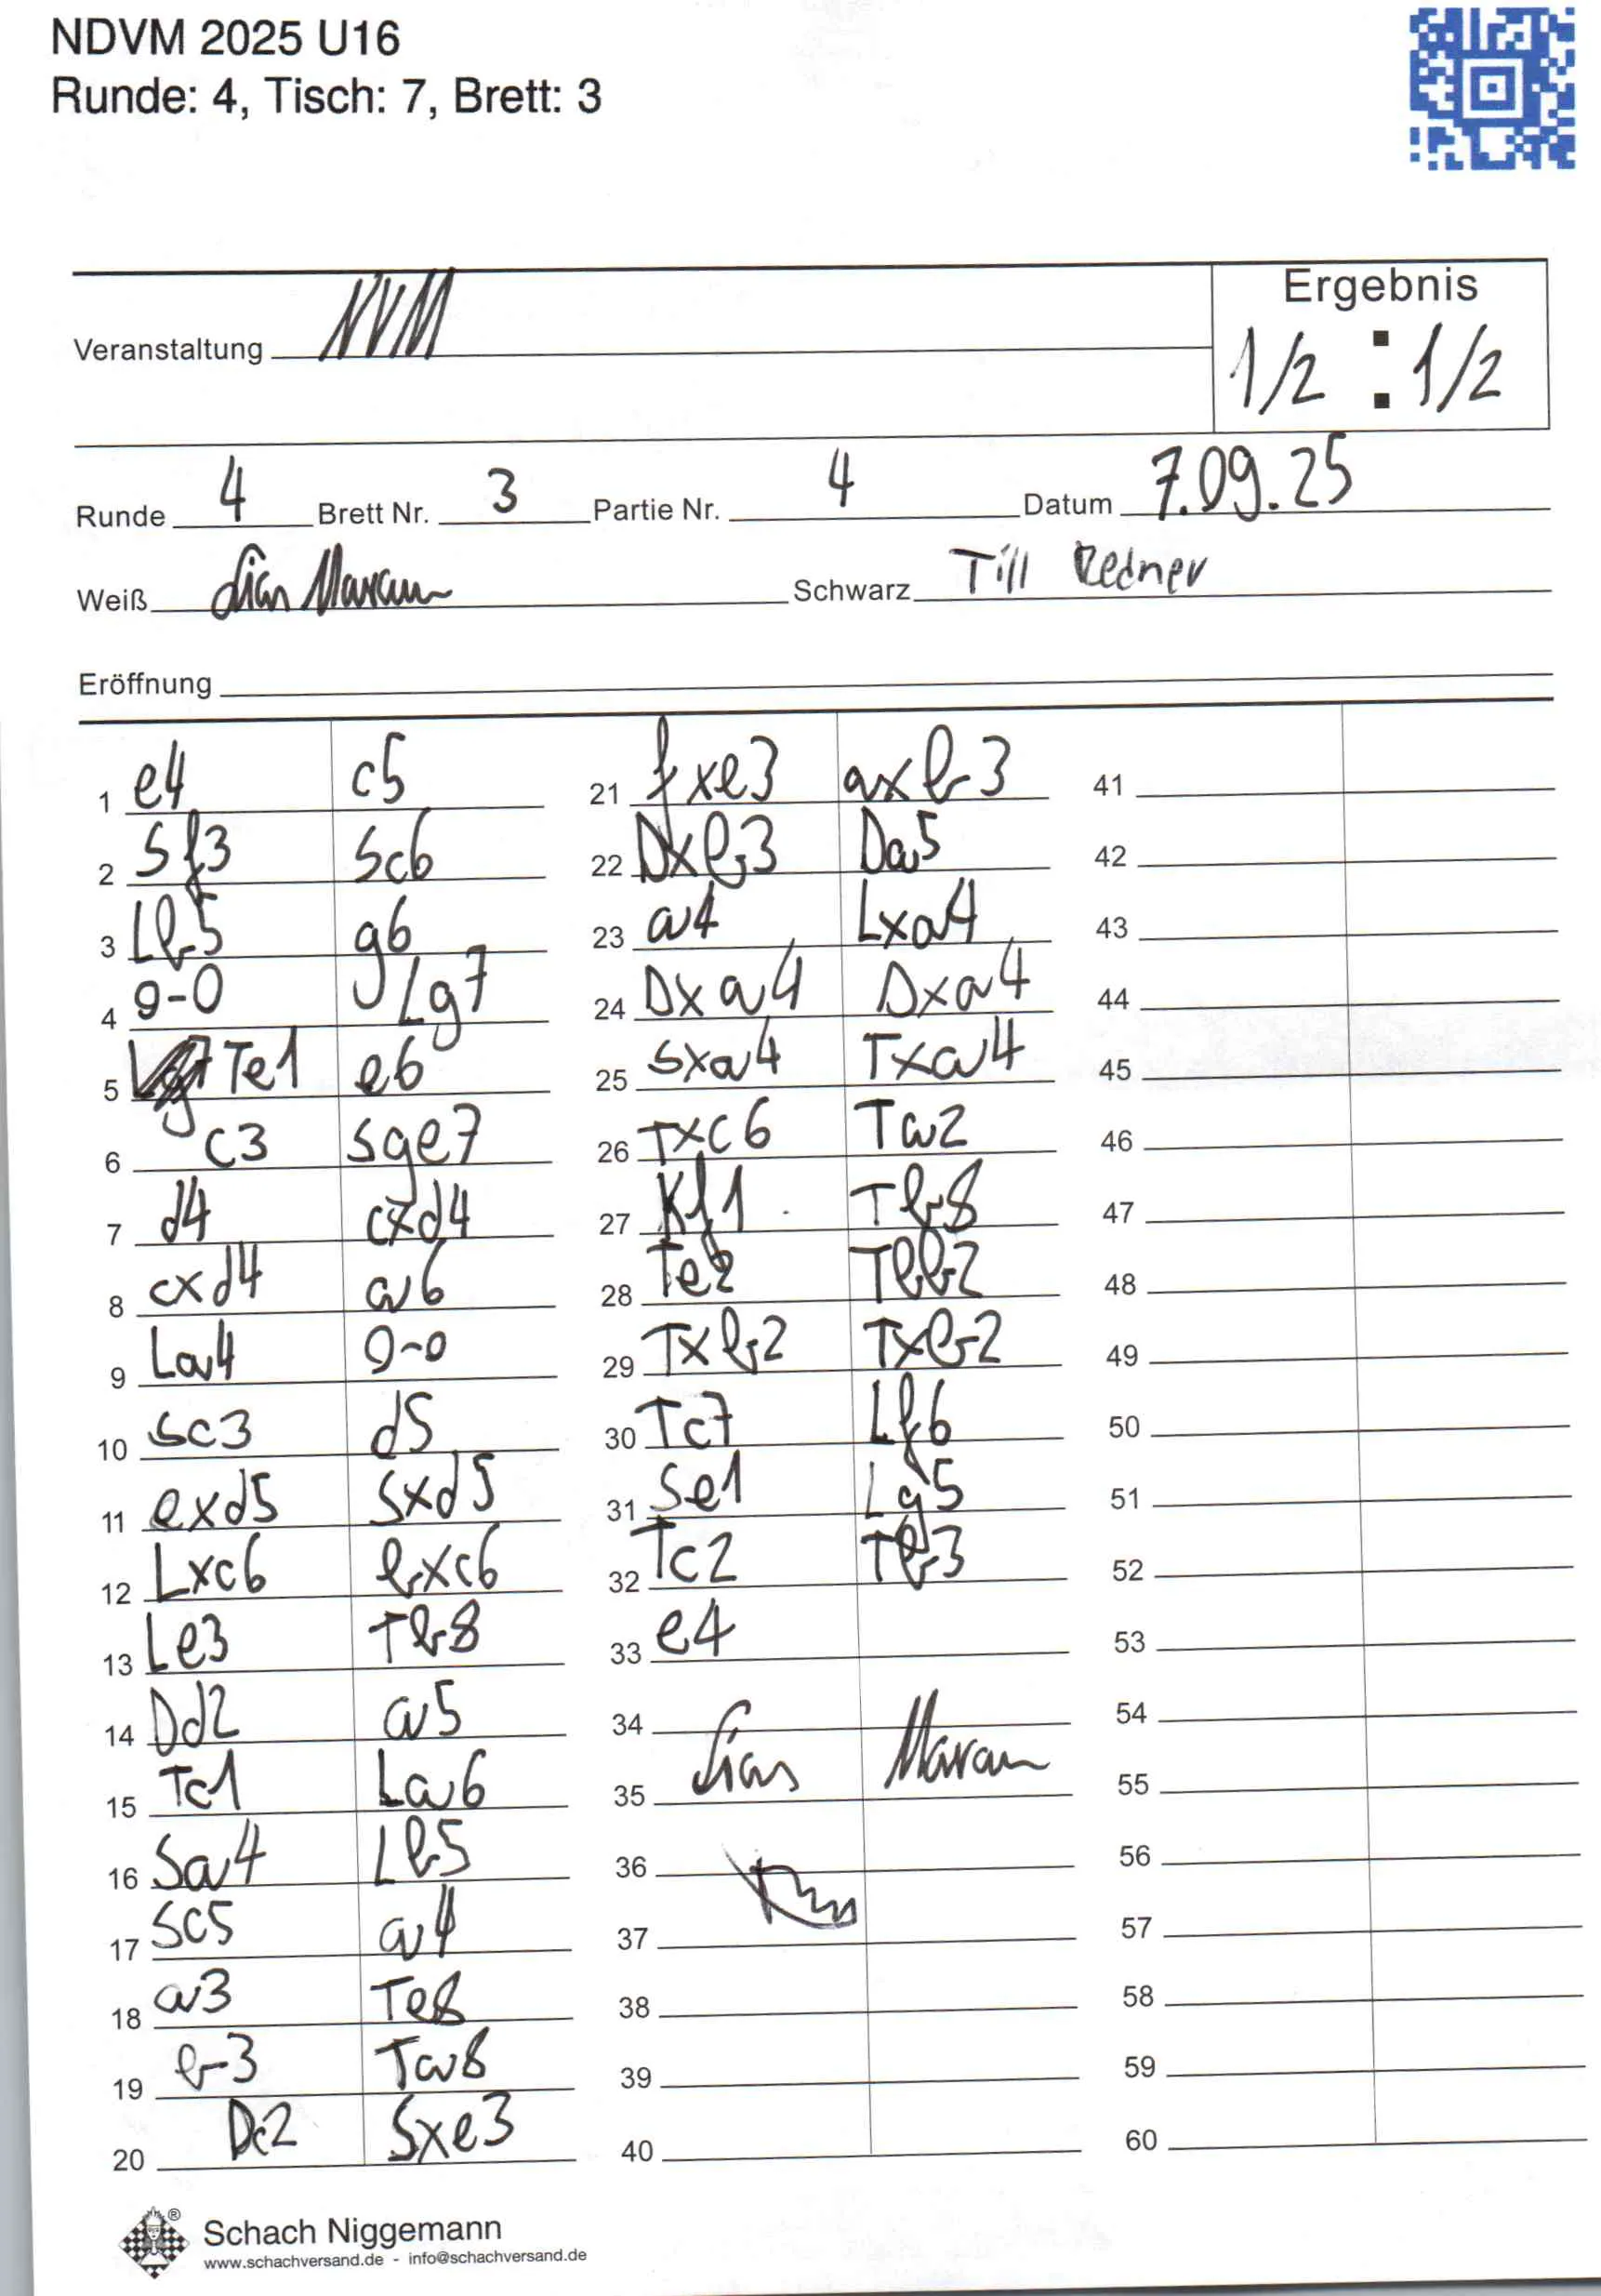 NDVM 2025 U16
Runde: 4, Tisch: 7, Brett: 3
Veranstaltung NVM
Ergebnis
1/2 : 1/2
Runde 4 Brett Nr. 3 Partie Nr. 4 Datum 7.09.25
Weiß Schwarz Till Redner
Eröffnung
1 e4 c5
2 Sf3 Sc6
3 Lb5 g6
4 0-0 Lg7
5 Te1 e6
6 c3 Sge7
7 d4 cxd4
8 cxd4 a6
9 La4 0-0
10 Sc3 d5
11 exd5 Sxd5
12 Lxc6 bxc6
13 Le3 Tb8
14 Dd2 a5
15 Tc1 La6
16 Sa4 Lb5
17 Sc5 a4
18 a3 Te8
19 b3 Ta8
20 Dc2 Sxe3
21 fxe3 axb3
22 Dxb3 Da5
23 a4 Lxa4
24 Dxa4 Dxa4
25 Sxa4 Txa4
26 Txc6 Ta2
27 Kf1 Tb8
28 Te2 Tbb2
29 Txb2 Txb2
30 Tc7 Lf6
31 Se1 Lg5
32 Tc2 Tb3
33 e4
34
35
36
37
38
39
40
41
42
43
44
45
46
47
48
49
50
51
52
53
54
55
56
57
58
59
60
Schach Niggemann
www.schachversand.de - info@schachversand.de